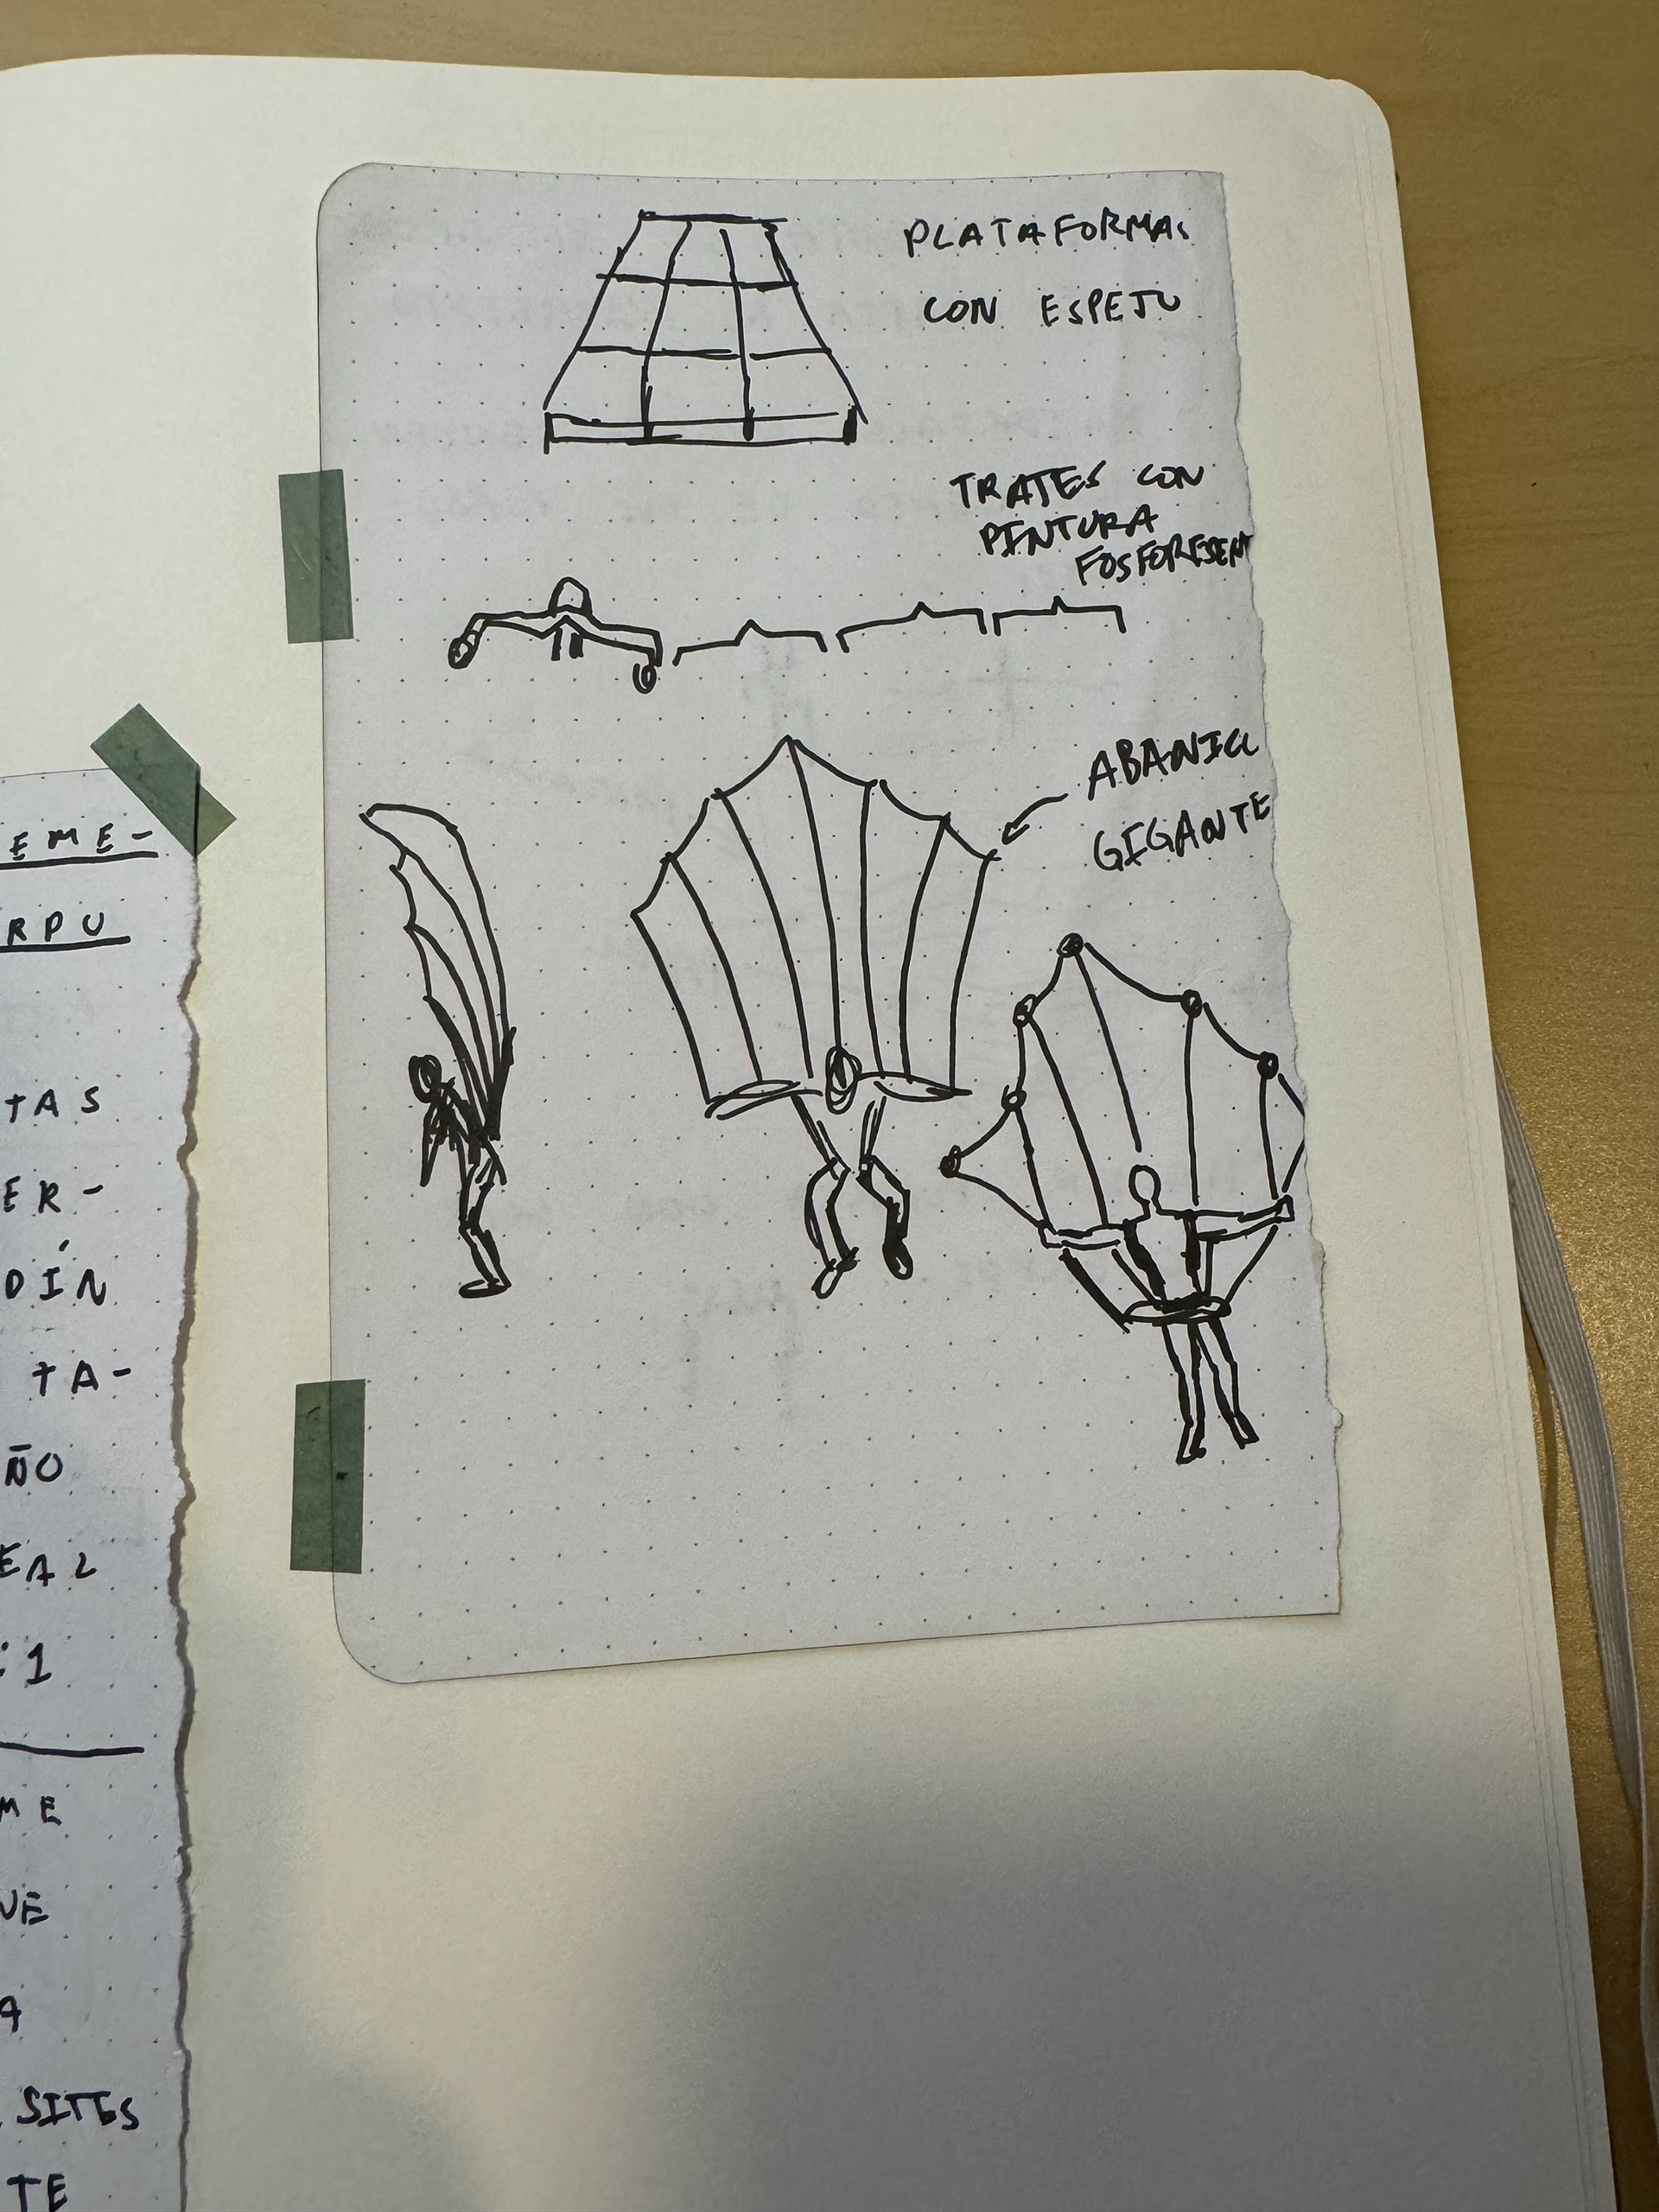 PLATAFORMAS
CON ESPEJO
TRAJES CON
PINTURA
FOSFORESENT
ABANICO
GIGANTE
EME-
RPO
TAS
ER-
DÍN
TA-
ÑO
EAL
:1
ME
UE
A
SITES
TE